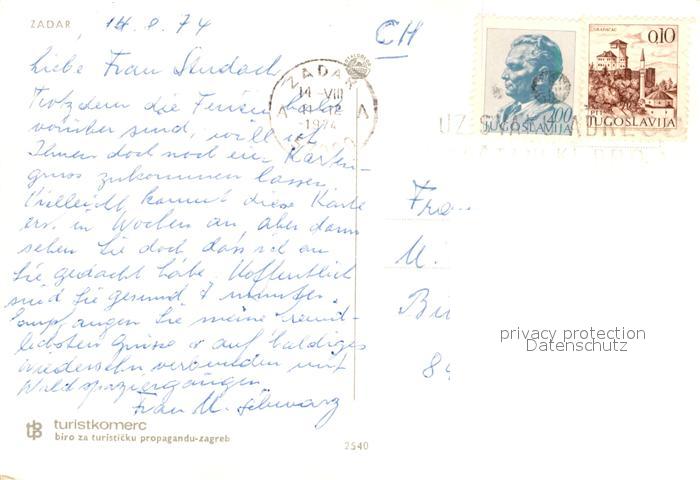 ZADAR
14.8.74
CH
Liebe Frau Studach
Trotzdem die Ferien bald
vorüber sind, will ich
Ihnen doch noch ein Karten-
gruss zukommen lassen.
Vielleicht kommt diese Karte
erst in Wochen an, aber dann
sehen Sie doch dass ich an
Sie gedacht habe. Hoffentlich
sind Sie gesund & munter.
Empfangen Sie meine freund-
lichsten Grüsse & auf baldiges
wiedersehn verbunden mit
Waldspaziergängen
Frau M. Schwarz
ZADAR
14-VIII
11-12
-1974
400
JUGOSLAVIJA
GRADAČAC
0,10
JUGOSLAVIJA
Frau
M.
privacy protection
Datenschutz
turistkomerc
biro za turističku propagandu-zagreb
2540